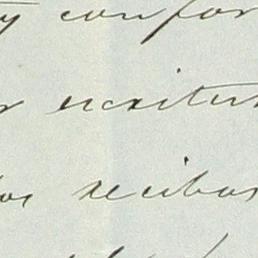 y confor
r escritur
os recibos